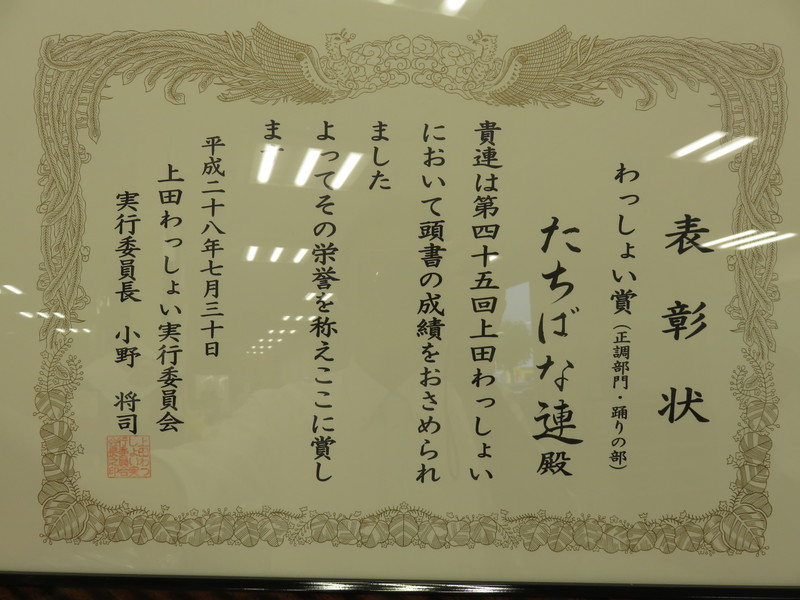 表彰状
わっしょい賞（正調部門・踊りの部）
たちばな連殿
貴連は第四十五回上田わっしょい
において頭書の成績をおさめられ
ました
よってその栄誉を称えここに賞し
ます
平成二十八年七月三十日
上田わっしょい実行委員会
実行委員長 小野 将司